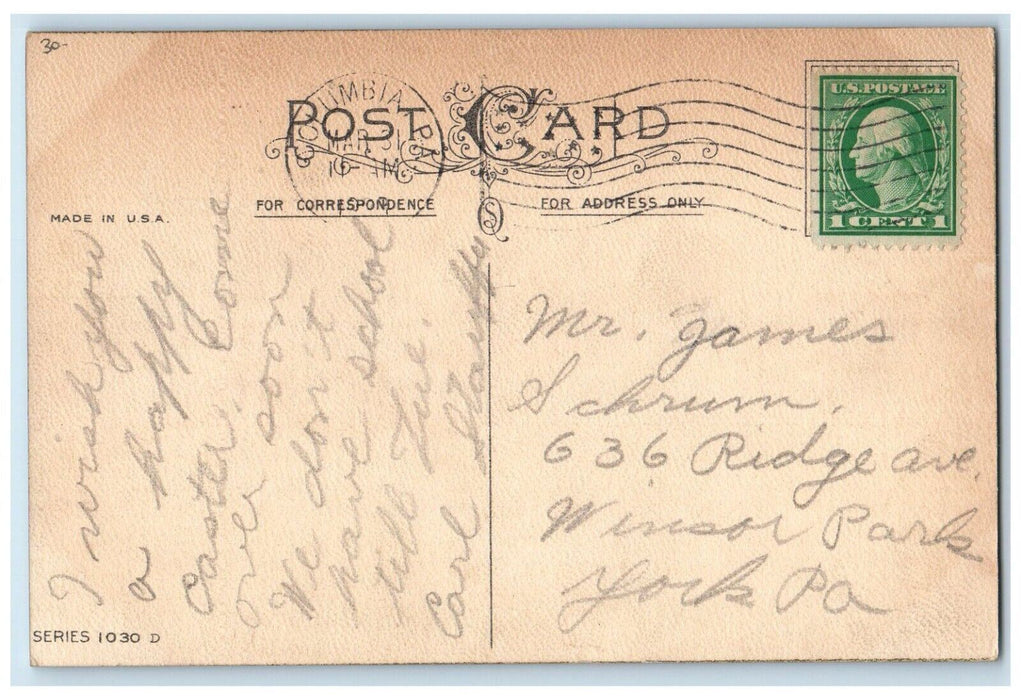 30-
POST CARD
COLUMBIA PA
MAR 31
10- AM
U.S. POSTAGE
1 CENT 1
MADE IN U.S.A.
FOR CORRESPONDENCE
FOR ADDRESS ONLY
S
I wish you
a happy
Easter. Come
over soon
We don't
have school
till Tue.
Carl Stauffer
Mr. James
Schrum.
636 Ridge ave.
Winsor Park
York Pa
SERIES 1030 D